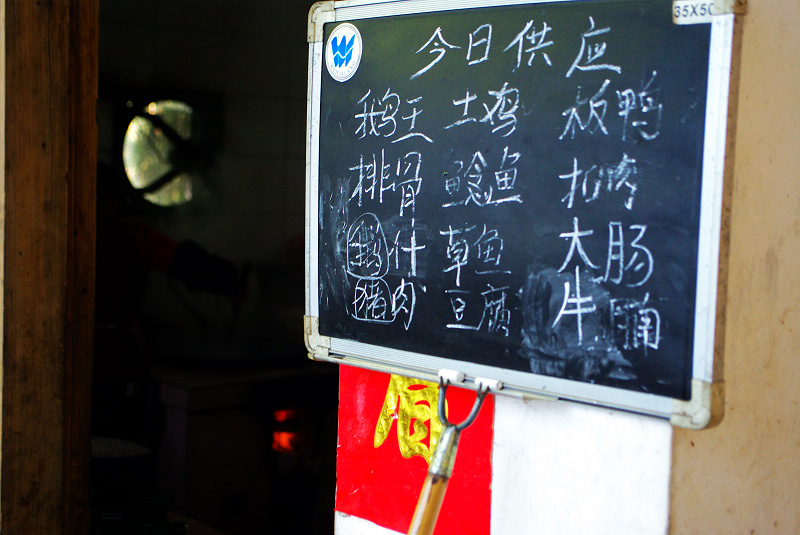 35X50
今日供应
鹅王 土鸡 板鸭
排骨 鲶鱼 扣肉
鹅什 草鱼 大肠
猪肉 豆腐 牛腩